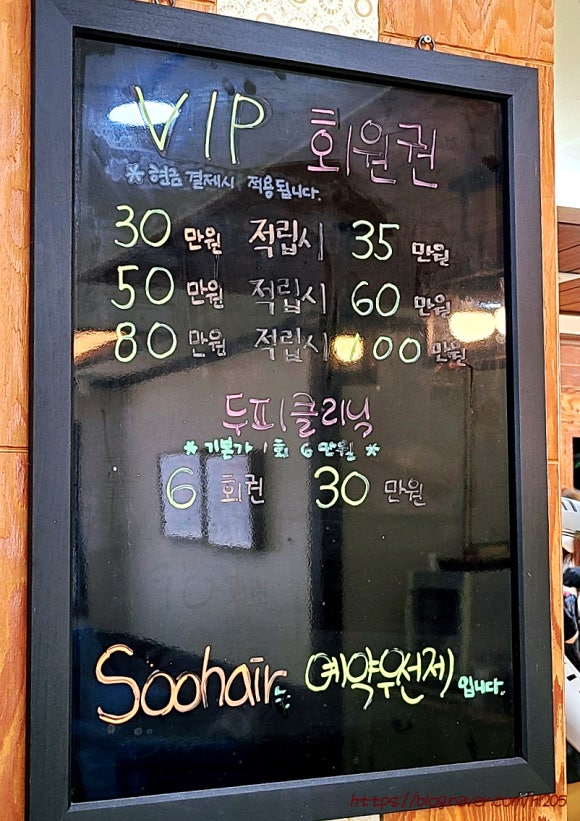 VIP 회원권
* 현금 결제시 적용됩니다.
30 만원 적립시 35 만원
50 만원 적립시 60 만원
80 만원 적립시 100 만원
두피클리닉
* 기본가 1회 6만원 *
6 회권 30 만원
Soohair는 예약우선제 입니다.